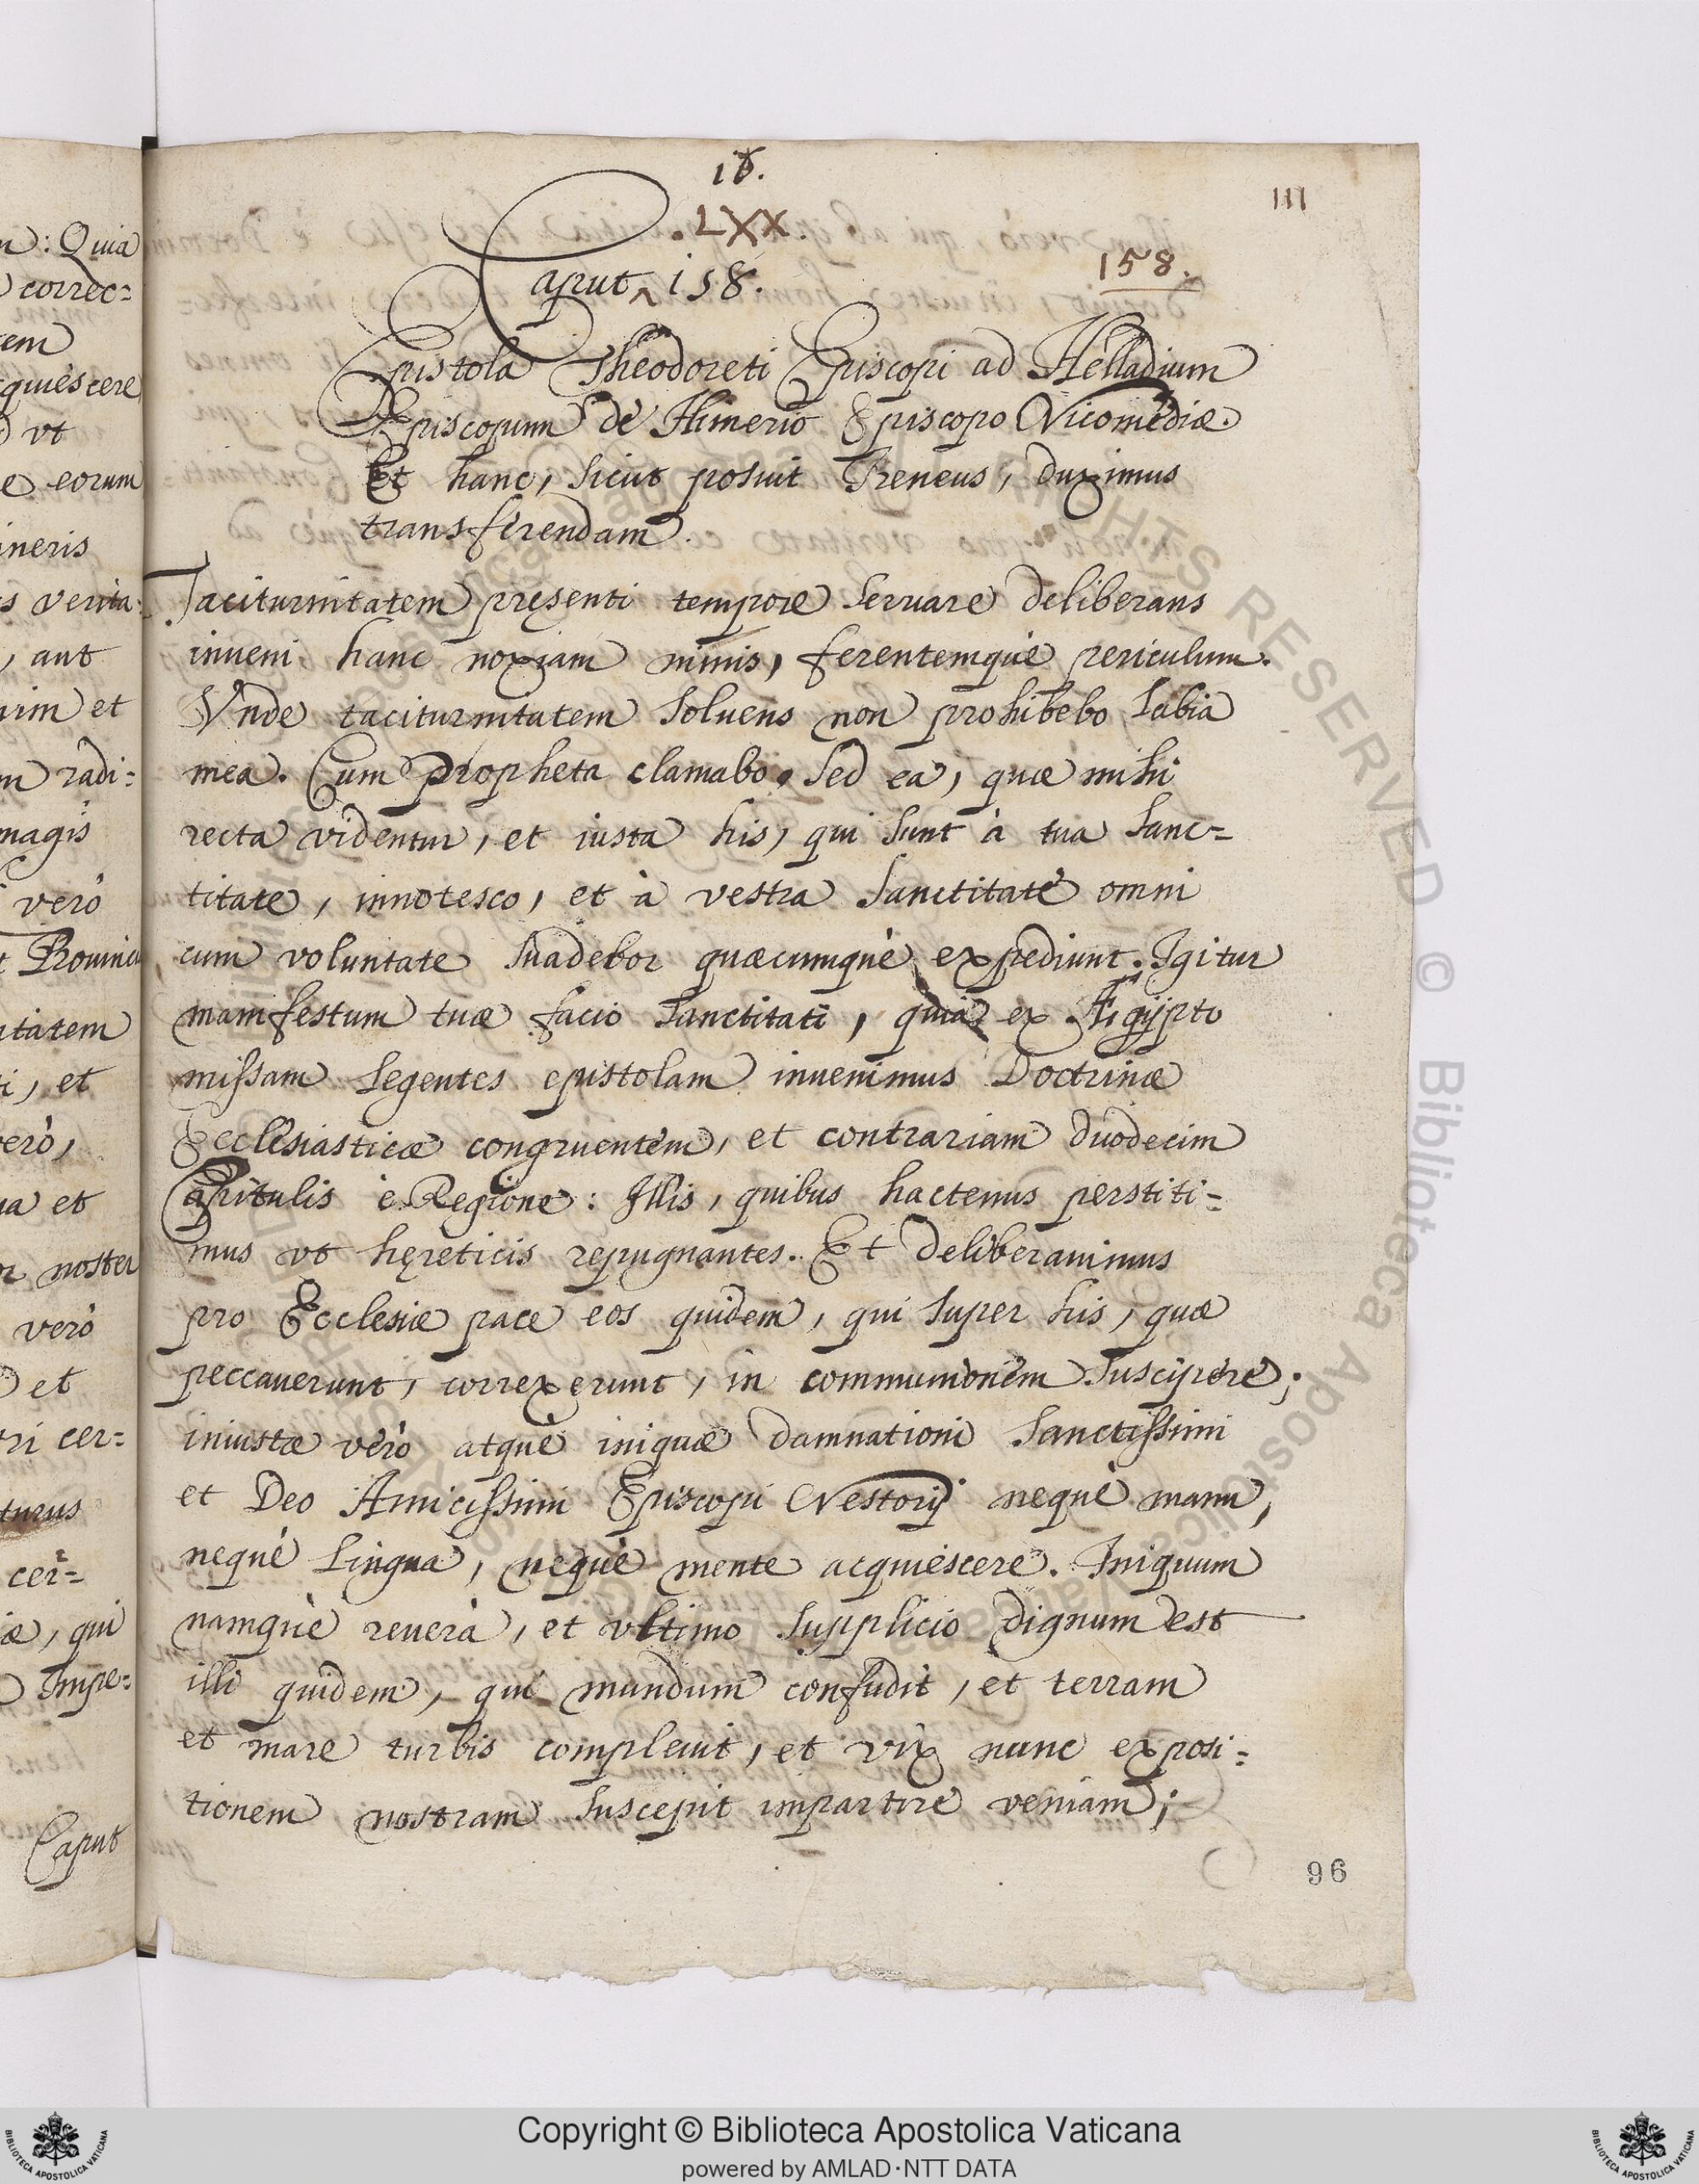 16.
111
.LXX.
158.
Caput ^ 158.
Epistola Theodoreti Episcopi ad Helladium
Episcopum de Himerio Episcopo Nicomediæ.
Et hanc, sicut posuit Ireneus, duximus
transferendam.
Taciturnitatem pręsenti tempore seruare deliberans
inueni hanc noxiam nimis, ferentemquè periculum.
Vnde taciturnitatem soluens non prohibebo labia
mea. Cum Propheta clamabo. Sed ea, quæ mihi
recta videntur, et iusta his, qui sunt à tua Sanc=
titate, innotesco, et à vestra Sanctitate omni
cum voluntate suadebor quæcumquè expediunt. Igitur
manifestum tuæ facio Sanctitati, quia ex Ægÿpto
missam legentes epistolam inuenimus Doctrinæ
Ecclesiasticæ congruentem, et contrariam duodecim
Capitulis è Regione: Illis, quibus hactenus perstiti=
mus vt hęreticis repugnantes. Et deliberauimus
pro Ecclesiæ pace eos quidem, qui super his, quæ
peccauerunt, correxerunt, in communionem suscipere;
iniustæ verò atquè iniquæ damnationi Sanctissimi
et Deo Amicissimi Episcopi Nestorij nequè manu,
nequè lingua, nequè mente acquiescere. Iniquum
namquè reuerà, et vltimo supplicio dignum est
illi quidem, qui mundum confudit, et terram
et mare turbis compleuit, et vix nunc exposi=
tionem nostram suscepit impartire veniam;
96
: Quia
correc=
em
quiescere
vt
eorum
ineris
verita
, aut
et
radi=
magis
verò
Prouinci
tatem
, et
erò,
et
noster
verò
et
cer=
turus
cer=
, qui
Impe=
Caput
Copyright © Biblioteca Apostolica Vaticana
powered by AMLAD·NTT DATA